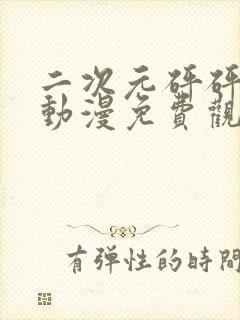 二次元砰砰
動漫免費觀
有弹性的時間